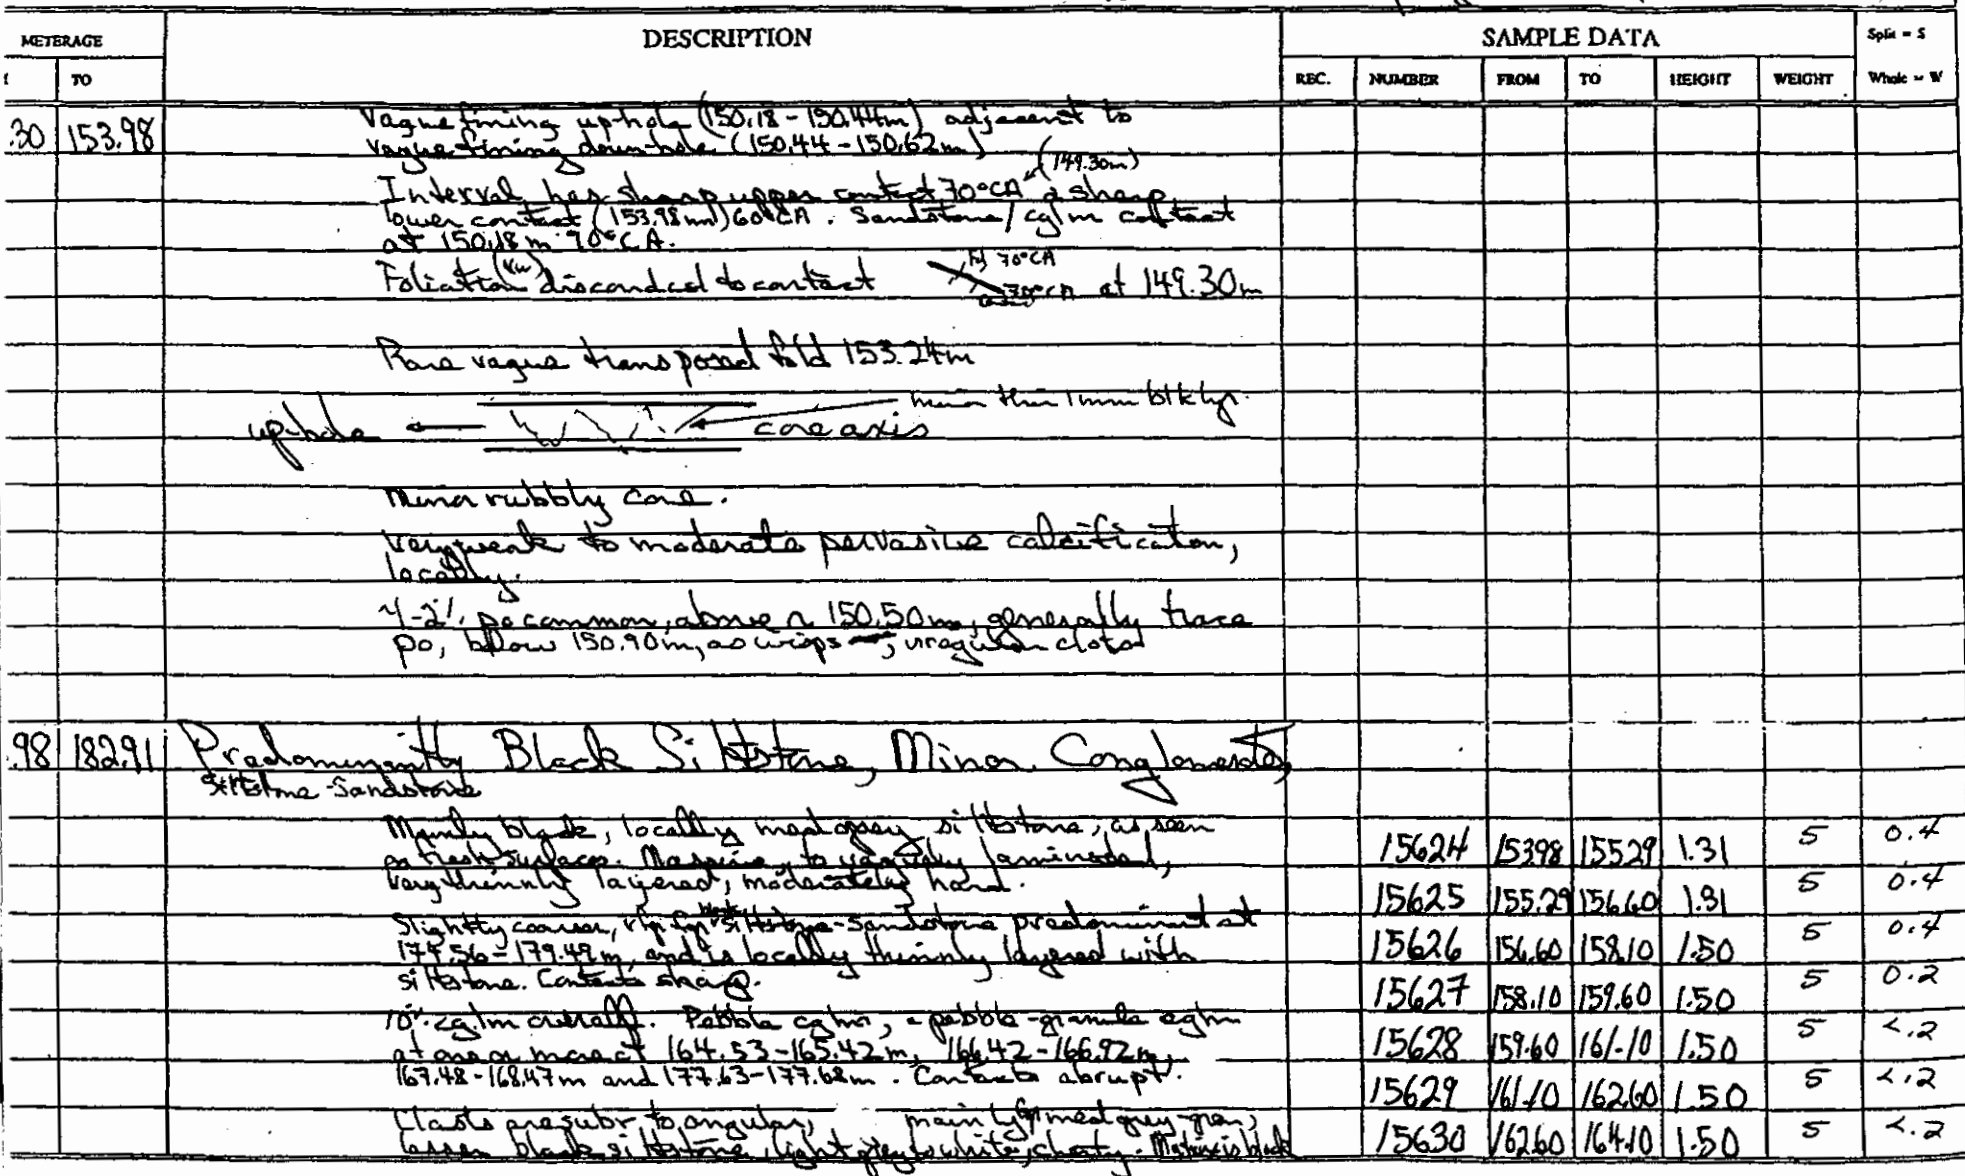 METERAGE DESCRIPTION SAMPLE DATA Split = S
TO REC. NUMBER FROM TO HEIGHT WEIGHT Whole = W
.30 153.98 Vague fining up-hole (150.18 - 150.44m) adjacent to
vague fining down-hole (150.44 - 150.62m)
(149.30m)
Interval has sharp upper contact 70°CA & sharp
lower contact (153.98m) 60°CA. Sandstone/cglm contact
at 150.18m 70°CA.
Foliation (vw) discordant to contact 70°CA at 149.30m
Rare vague transposed fold 153.24m
up-hole core axis
Minor rubbly core.
Very weak to moderate pervasive calcification,
locally.
~1-2% po common, above ~ 150.50m, generally trace
po, below 150.90m, as wisps, irregular clots
.98 182.91 Predominantly Black Siltstone, Minor Conglomerate,
Siltstone-Sandstone
Mainly black, locally med grey siltstone, as seen
on fresh surfaces. Massive, to vaguely laminated,
very thinly layered, moderately hard.
Slightly coarser, black siltstone-sandstone predominant at
179.49m, and is locally thinly layered with
siltstone. Contacts sharp.
10% cglm overall. Pebble cglm, pebble-granule cglm
at 164.53-165.42m, 166.42-166.92m,
167.48-168.47m and 177.63-177.68m. Contacts abrupt.
Clasts are subr to angular, mainly med grey-green,
lesser black siltstone, light grey to white, cherty. Matrix is black
15624 153.98 155.29 1.31 5 0.4
15625 155.29 156.60 1.31 5 0.4
15626 156.60 158.10 1.50 5 0.4
15627 158.10 159.60 1.50 5 0.2
15628 159.60 161.10 1.50 5 <.2
15629 161.10 162.60 1.50 5 <.2
15630 162.60 164.10 1.50 5 <.2